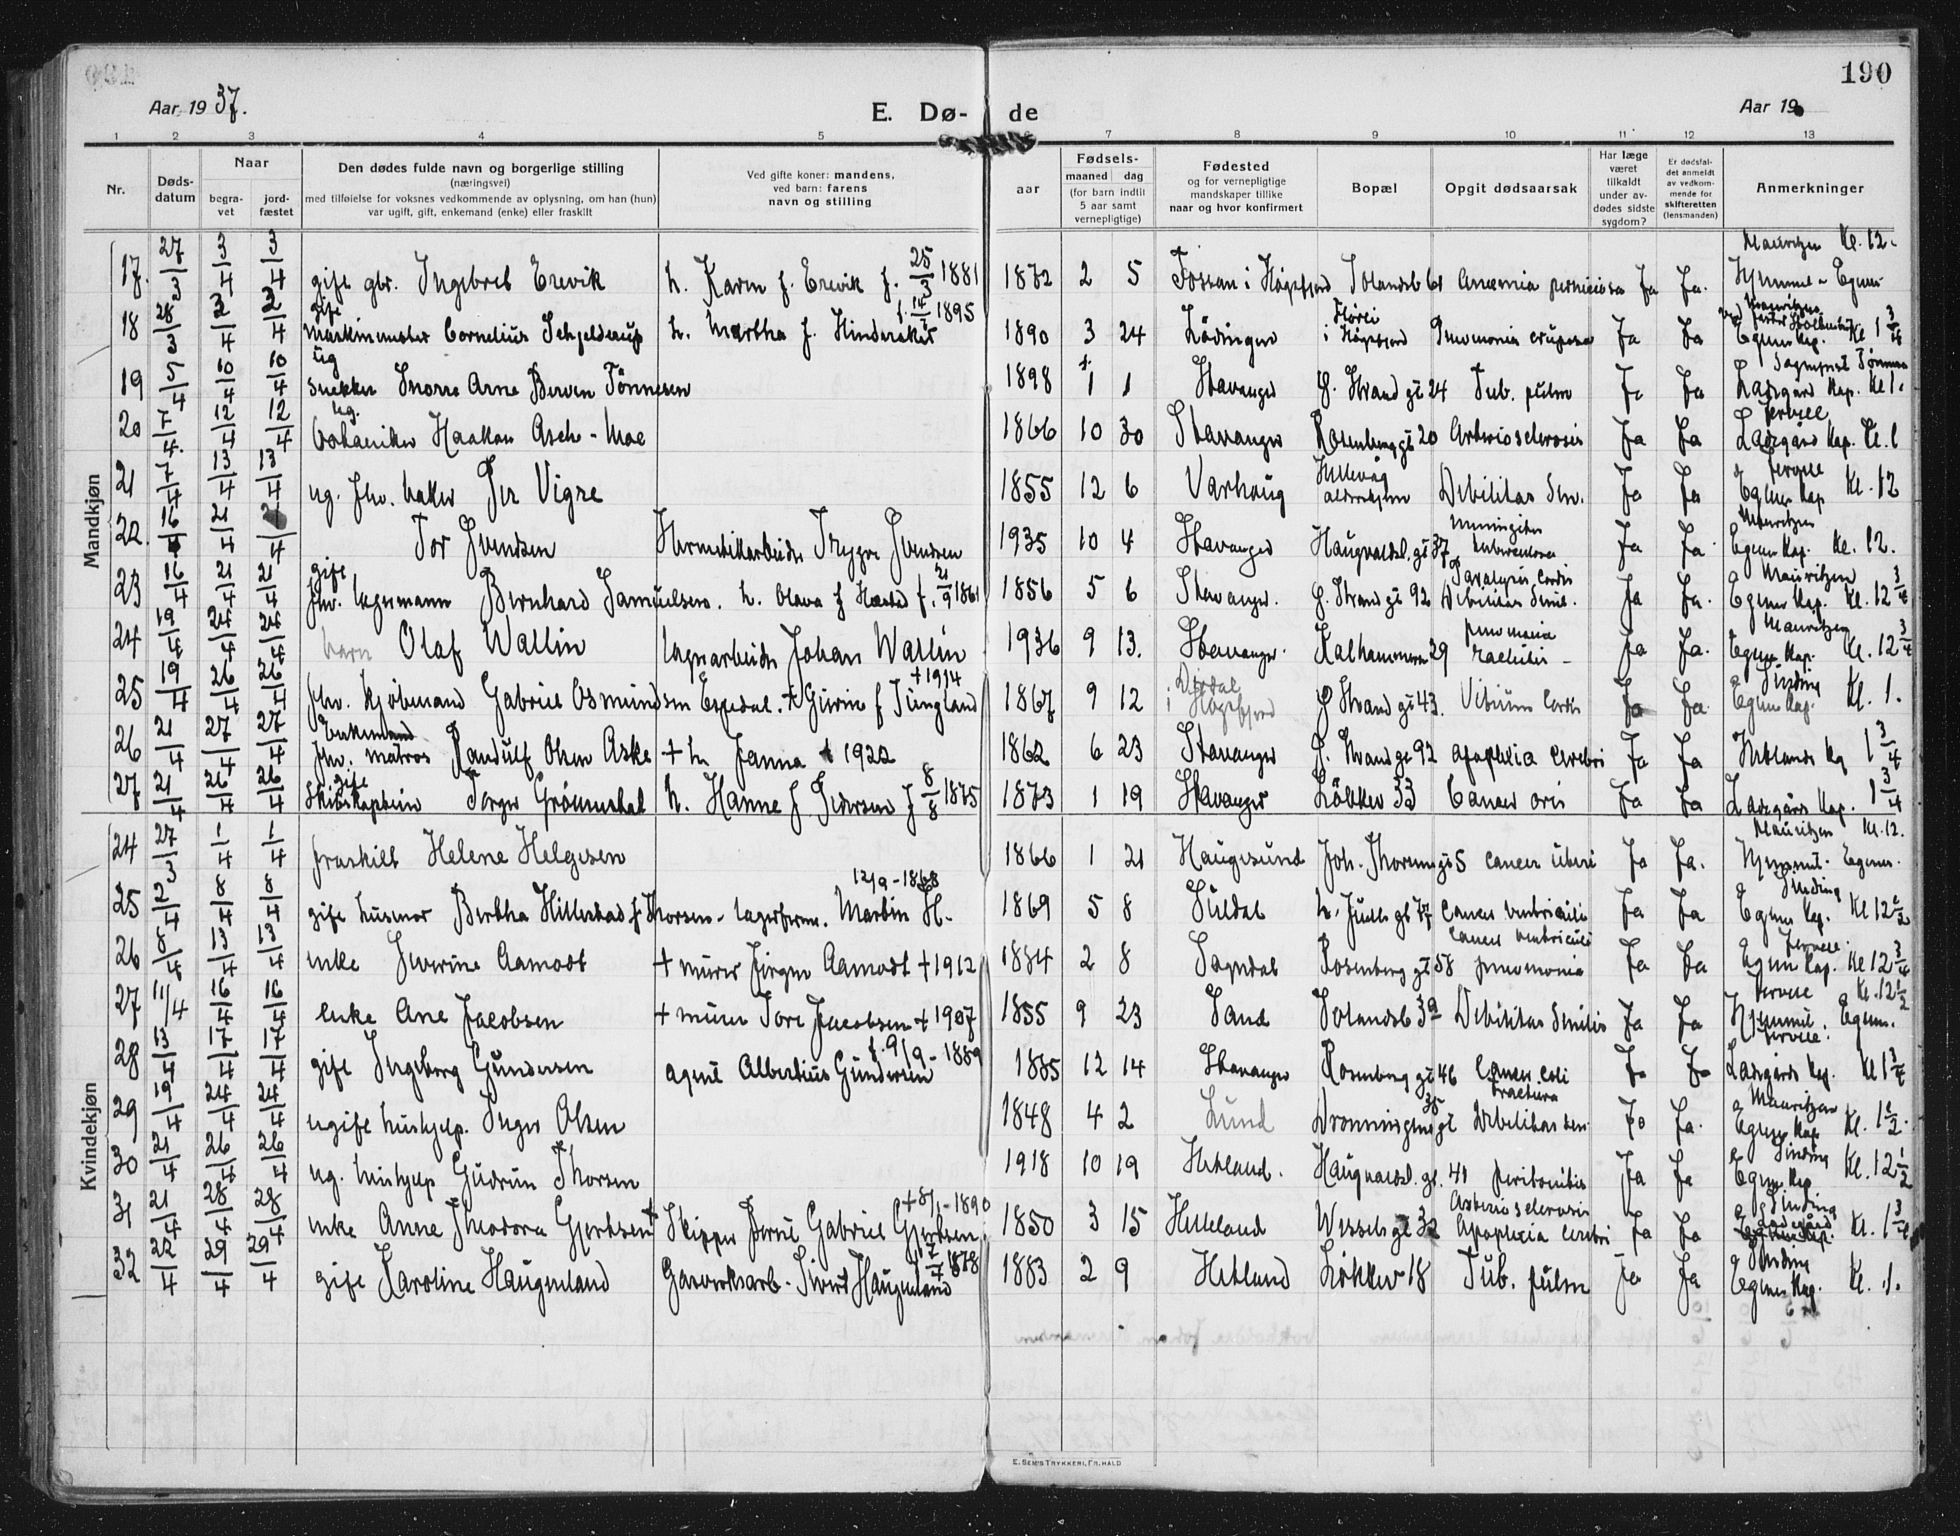 190
Aar 1937.
E. Dø- de
Aar 19
1 2 3 4 5 6 7 8 9 10 11 12 13
Nr.
Døds-
datum
Naar
begra-
vet
jord-
fæstet
Den dødes fulde navn og borgerlige stilling
(næringsvei)
med tilføielse for voksnes vedkommende av oplysning, om han (hun)
var ugift, gift, enkemand (enke) eller fraskilt
Ved gifte koner: mandens,
ved barn: farens
navn og stilling
aar
Fødsels-
maaned dag
(for barn indtil
5 aar samt
vernepligtige)
Fødested
og for vernepligtige
mandskaper tillike
naar og hvor konfirmert
Bopæl
Opgit dødsaarsak
Har læge
været
tilkaldt
under av-
dødes sidste
sygdom?
Er dødsfal-
det anmeldt
av vedkom-
mende for
skifteretten
(lensmanden)
Anmerkninger
Mandkjøn
17. 27/3 3/4 3/4 gift gbr. Ingebret Erevik h. Karen f. Erevik f. 25/3 1881 1872 2 5 Fossan i Høgsfjord Solandsb 61 Anæmia perniciosa Ja Ja. Mauritzen Kl. 12. Hjemmet - Egenes
18 28/3 3/4 3/4 gift Maskinmester Cornelius Schjelderup h. Martha f. Hinderaker 1895 1890 3 24 Lödingen i Høgsfjord Pneumonia cruposa Ja Ja Egenes Kap. Kl 1 3/4
19 5/4 10/4 10/4 ug snekker Snorre Arne Berven Tönnesen 1898 1 1 Stavanger Ø. Strand gt 24 Tub. pulm Ja Ja Ladegård Kap. Kl 1.
20 7/4. 12/4 12/4 ug. botaniker Haakon Asch-Moe 1866 10 30 Stavanger Rosenberg gt 20 Arteriosclerosis Ja Ja Ladegård Kap. Kl. 1
21 7/4 13/4 13/4 ug. fhv. baker Per Vigre 1855 12 6 Varhaug Hillevåg aldershjem Debilitas Sen. Ja Ja Egenes Kap Kl. 12
22. 16/4 21/4 21/4 Tor Svendsen Hermetikkarbeider Trygve Svendsen 1935 10 4 Stavanger Haugvaldst. gt 37 Meningitis tuberculosa Ja Ja Mauritzen Egenes Kap. Kl. 12.
23 16/4 21/4 21/4 gift fhv. lagermann Bernhard Samuelsen. h. Olava f Hæstad f. 21/9 1861 1856 5 6 Stavanger. Ø. Strand gt 92 Paralysis Cordis Debilitas Senil. Ja Ja. Mauritzen Egenes Kap. Kl. 12 3/4
24 19/4 24/4 24/4 barn Olaf Wallin lagerarbeider Johan Wallin 1936 9 13. Stavanger. Kalhammeren 29 pneumonia rachitis - Ja Ja. Mauritzen Egenes Kap. Kl. 12 3/4
25 19/4 26/4 26/4 fhv. kjøbmand Gabriel Osmundsen Espedal. + Gurine f Tungland +1914 1867 9 12 Dirdal i Høgsfjord Ø Strand gt 43. Vitium Cordis Ja Ja Sinding Egenes Kap. Kl. 1.
26 21/4 27/4 27/4 Enkemand fhv. matros Randulf Olsen Aske + h Janna + 1922 1862 6 23 Stavanger Ø. Strand gt 92 Apoplexia Cerebri Ja Ja Hetlands Kg 1 3/4
27 21/4 26/4 26/4 gift Skibskaptein Torger Grönnestal h. Hanne f. Pedersen f 8/8 1875 1873 1 19 Stavanger Lökkev 33 Cancer oris Ja Ja Ladegårds Kap. 1 3/4
Kvindekjøn
24 27/3 1/4 1/4 fraskilt Helene Helgesen 1866 1 21 Haugesund Joh. Thorsen gt 5 Cancer uteri Ja Ja. Mauritzen Kl. 12. Hjemmet. Egenes.
25 2/4 8/4 8/4 gift husmor Bertha Hillestad f. Thorsen - lagerform. Martin H. 12/9-1868 1869 5 8 Suldal Cancer ventriculi Ja Ja Sinding Egenes Kap. Kl 12 1/2
26 8/4 13/4 13/4 enke Severine Aamodt + murer Jörgen Aamodt + 1912 1884 2 8 Sogndal Rosenberg gt 58 Cancer ventriculi pneumonia Ja Ja Egenes Kap. Kl 12 3/4
27 11/4 16/4 16/4 enke Ane Jacobsen + murer Tore Jacobsen + 1907 1855 9 23 Sand Solandsb 39 Debilitas Senilis Ja Ja Kl. 12 1/2 Hjemmet. Egenes.
28 13/4 17/4 17/4 gift Ingeborg Gundersen agent Albertius Gundersen f. 9/9-1889 1885 12 14 Stavanger Rosenberg gt 46 Cancer coli Ja Ja Ladegårds Kap. Kl 1 3/4
29 19/4 24/4 24/4 ugift hushjelp. Inger Olsen 1848 4 2 Lund Dronningens gt 35 Fractura Debilitas sen Ja Ja. Mauritzen Egenes Kap Kl. 1 1/2.
30 21/4 26/4 26/4 ug. hushjelp Gudrun Thorsen 1918 10 19 Hetland. Haugvaldst. gt. 41 peritonitis Ja Ja Sinding Egenes Kap Kl. 12 1/2
31 21/4 28/4 28/4 enke Anne Theodora Gjertsen + Skipper Jens Gabriel Gjertsen. + 8/1-1890 1850 3 15 Helleland Wessels gt 32 Arteriosclerosis Apoplexia cerebri Ja Ja Sinding Ladegård Kap. Kl. 1 3/4
32 22/4 29/4 29/4 gift Karoline Haugenland Gasverksarb - Sivert Haugenland 7/7 1878 1883 2 9 Hetland Lökkev 18 Tub. pulm Ja Ja Sinding Egenes Kap. Kl. 1.
E. SEM'S TRYKKERI, FR.HALD